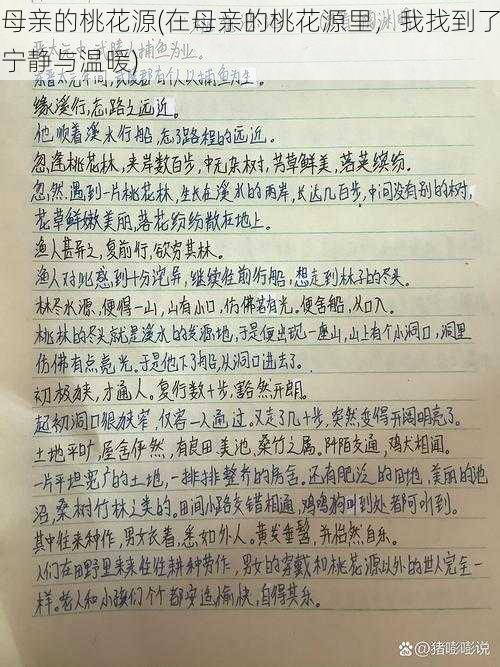 母亲的桃花源(在母亲的桃花源里，我找到了
宁静与温暖)
缘溪行,忘路之远近。
他顺着溪水行船,忘了路程的远近。
忽逢桃花林,夹岸数百步,中无杂树,芳草鲜美,落英缤纷。
忽然遇到一片桃花林,生长在溪水的两岸,长达几百步,中间没有别的树,
花草鲜嫩美丽,落花纷纷散在地上。
渔人甚异之,复前行,欲穷其林。
渔人对此感到十分诧异,继续往前行船,想走到林子的尽头。
林尽水源,便得一山,山有小口,仿佛若有光。便舍船,从口入。
桃林的尽头就是溪水的发源地,于是便出现一座山,山上有个小洞口,洞里
仿佛有点亮光。于是他下了船,从洞口进去了。
初极狭,才通人。复行数十步,豁然开朗。
起初洞口很狭窄,仅容一人通过。又走了几十步,突然变得开阔明亮了。
土地平旷,屋舍俨然,有良田美池,桑竹之属。阡陌交通,鸡犬相闻。
一片平坦宽广的土地,一排排整齐的房舍。还有肥沃的田地,美丽的池
沼,桑树竹林之类的。田间小路交错相通,鸡鸣狗叫到处都可听到。
其中往来种作,男女衣着,悉如外人。黄发垂髫,并怡然自乐。
人们在田野里来来往往耕种劳作,男女的穿戴和桃花源以外的世人完全一
样。老人和小孩们个个都安适愉快,自得其乐。
@猪嘭嘭说